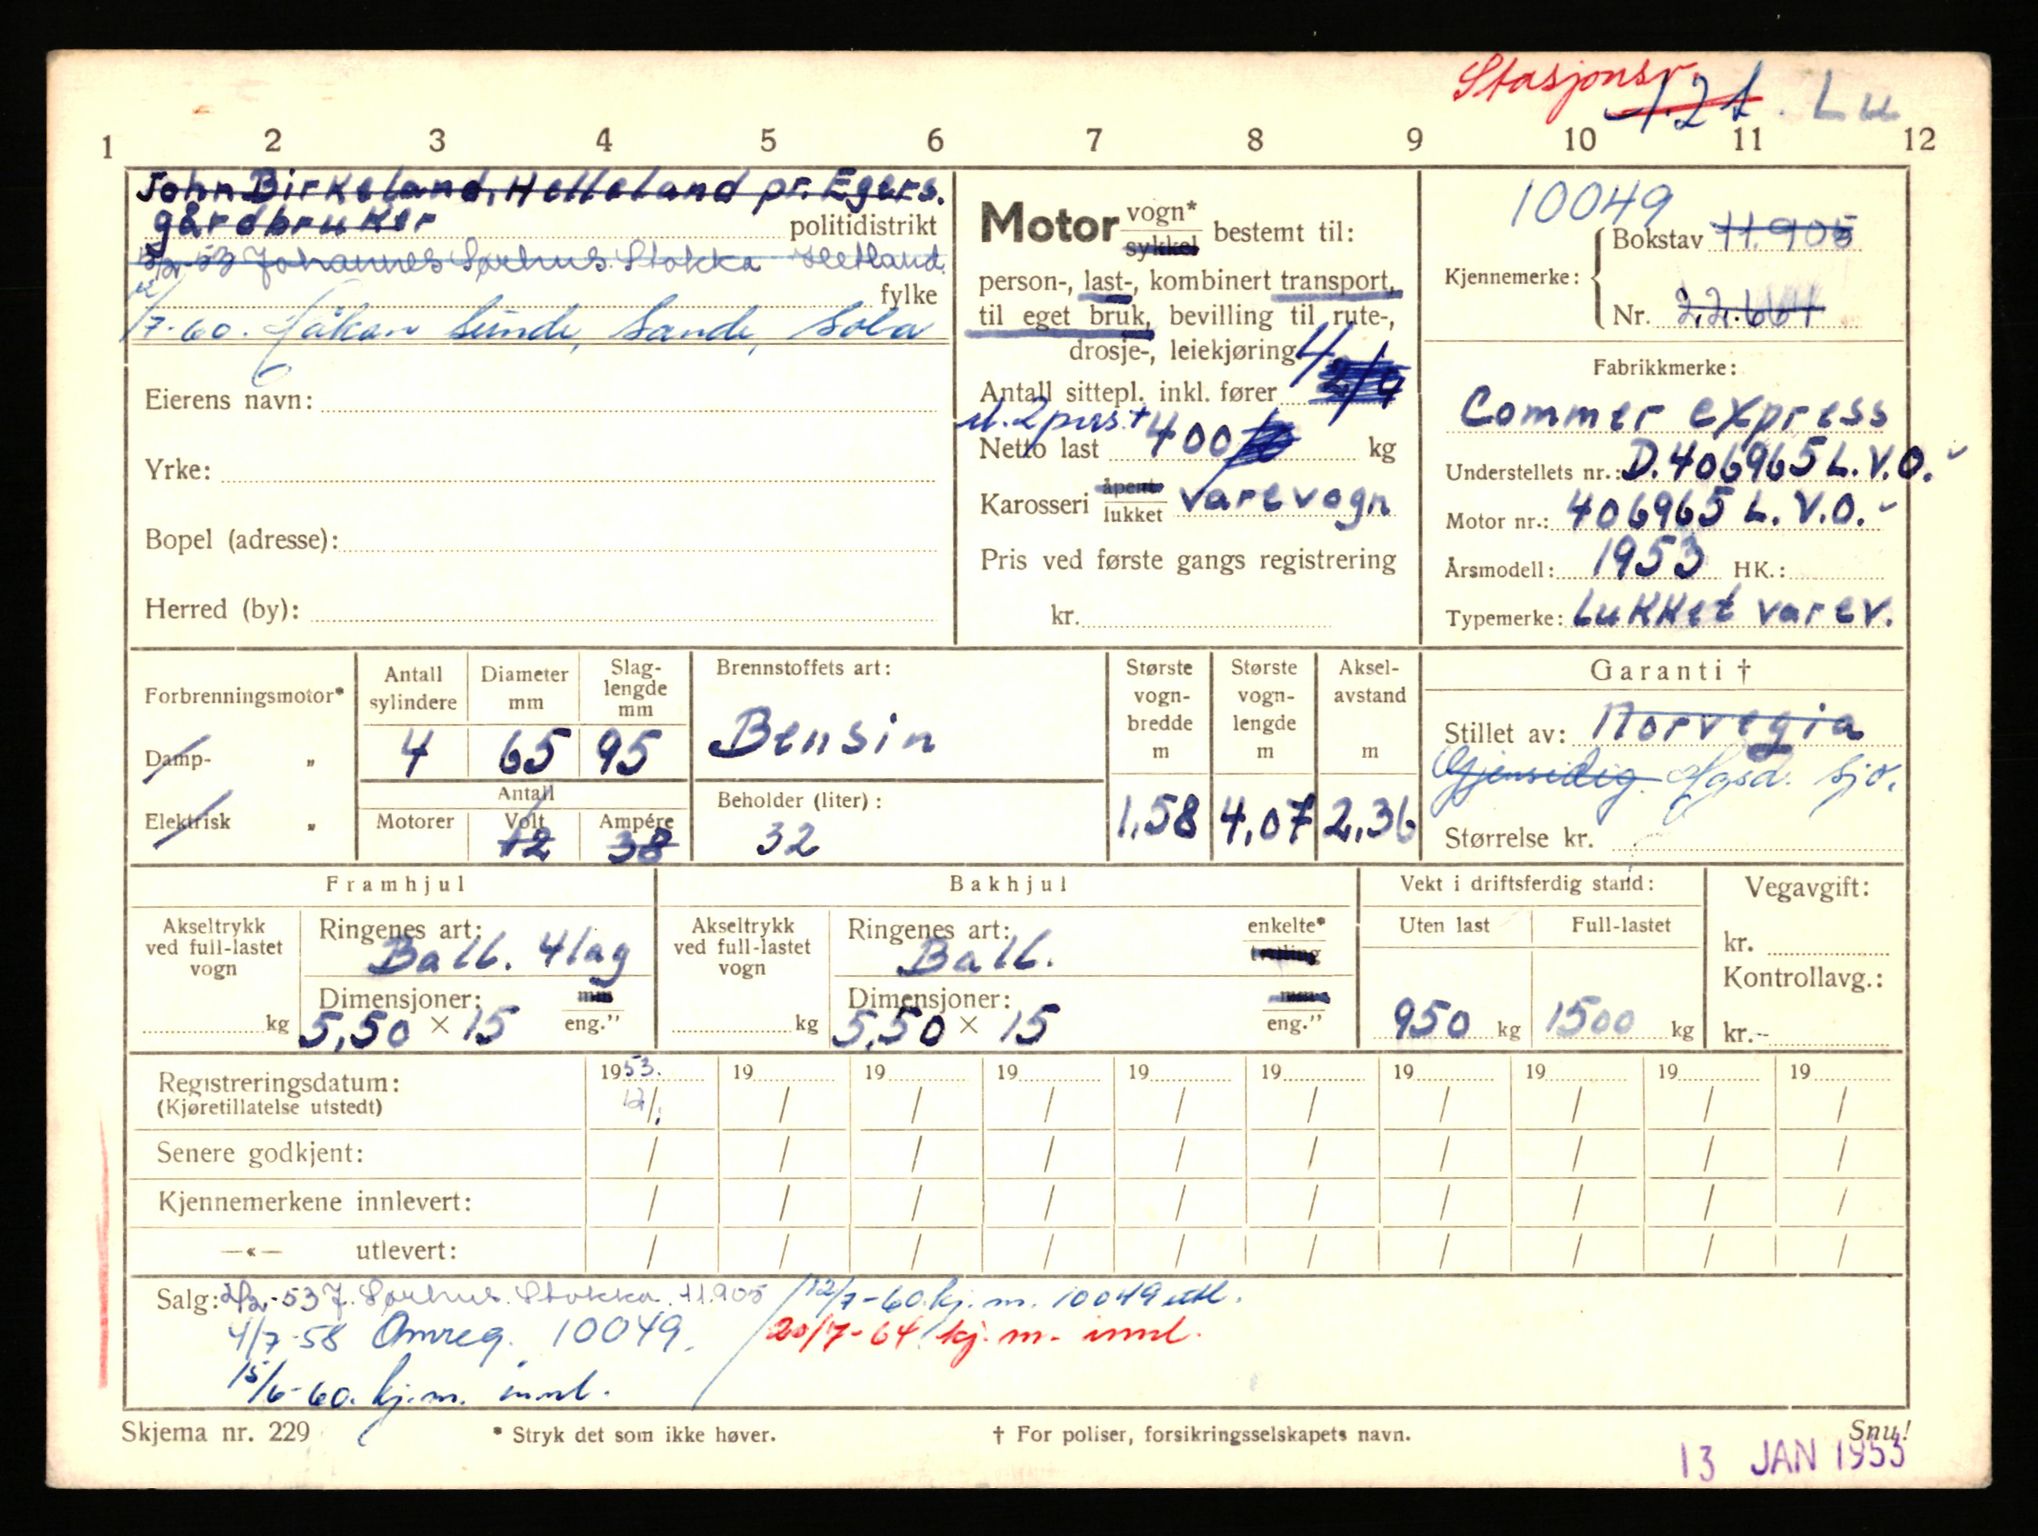 Stasjonsv.
1.2 t. Lu
1 2 3 4 5 6 7 8 9 10 11 12
John Birkeland, Helleland pr. Egers.
gårdbruker politidistrikt
12/2-53 Johannes Sørhus. Stokka Hetland.
fylke
12/7-60. Håkon Sunde, Sande, Sola
Eierens navn:
Yrke:
Bopel (adresse):
Herred (by):
Motor vogn* sykkel bestemt til:
person-, last-, kombinert transport,
til eget bruk, bevilling til rute-,
drosje-, leiekjøring
Antall sittepl. inkl. fører 4 2/4
m. 2 pers. +
Netto last 400 kg
Karosseri åpent lukket varevogn
Pris ved første gangs registrering
kr.
10049
Kjennemerke: Bokstav 11.905
Nr. 22.661
Fabrikkmerke:
Commer express
Understellets nr.: D.406965 L.V.O.
Motor nr.: 406965 L.V.O.
Årsmodell: 1953 HK.:
Typemerke: Lukket varev.
Forbrenningsmotor*
Damp- „
Elektrisk „
Antall sylindere Diameter mm Slag-lengde mm
4 65 95
Antall
Motorer Volt Ampére
12 38
Brennstoffets art:
Bensin
Beholder (liter):
32
Største vogn-bredde m Største vogn-lengde m Aksel-avstand m
1,58 4,07 2,36
Garanti †
Stillet av: Norvegia
Gjensidig. Hgsd. Sjø.
Størrelse kr.
Framhjul
Akseltrykk ved full-lastet vogn
kg
Ringenes art:
Ball. 4 lag
Dimensjoner: mm
5,50 × 15 eng."
Bakhjul
Akseltrykk ved full-lastet vogn
kg
Ringenes art: enkelte*
Ball. tvilling
Dimensjoner: mm
5,50 × 15 eng."
Vekt i driftsferdig stand:
Uten last Full-lastet
950 kg 1500 kg
Vegavgift:
kr.
Kontrollavg.:
kr.-
Registreringsdatum: 1953. 19 19 19 19 19 19 19 19 19
(Kjøretillatelse utstedt) 12/1 / / / / / / / / /
Senere godkjent: / / / / / / / / / /
Kjennemerkene innlevert: / / / / / / / / / /
—«— utlevert: / / / / / / / / / /
Salg: 2/2-53 J. Sørhus. Stokka. 11.905 / 12/7-60. kj.m. 10049 utl.
4/7-58 Omreg. 10049. 20/7-64 kj.m. innl.
15/6-60. kj.m. innl.
Skjema nr. 229
* Stryk det som ikke høver.
† For poliser, forsikringsselskapets navn.
Snu!
13 JAN 1953